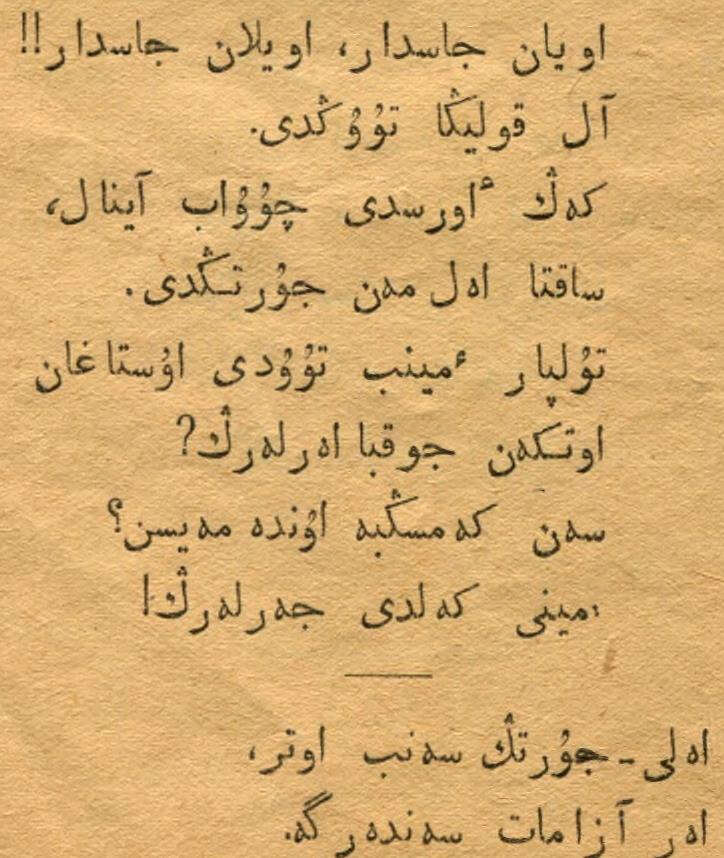 اويان جاسدار، اويلان جاسدار!!
آل قوليڭا تۇۋڭدى.
كەڭ ٴاورسدى چۇۋاب آينال،
ساقتا اەل مەن جۇرتڭدى.
تۇلپار ٴمينب تۇۋدى اۇستاغان
اوتكەن جوقبا اەرلەرڭ؟
سەن كەمسڭبە اۇندەمەيسن؟
ٴمينى كەلدى جەرلەرڭ!
اەلى-جۇرتڭ سەنب اوتر،
اەر آزامات سەندەرگە.